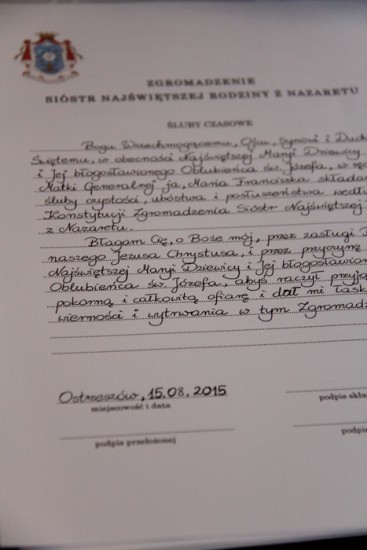 ZGROMADZENIE
SIÓSTR NAJŚWIĘTSZEJ RODZINY Z NAZARETU
ŚLUBY CZASOWE
Bogu Wszechmogącemu, Ojcu, Synowi i Duch
Świętemu, w obecności Najświętszej Maryi Dziewicy
i Jej błogosławionego Oblubieńca św. Józefa, w rę
Matki Generalnej ja, Maria Franciszka składa
śluby czystości, ubóstwa i posłuszeństwa wedł
Konstytucji Zgromadzenia Sióstr Najświętszej
z Nazaretu.
Błagam Cię, o Boże mój, przez zasługi
naszego Jezusa Chrystusa, i przez przyczynę
Najświętszej Maryi Dziewicy i Jej błogosławion
Oblubieńca św. Józefa, abyś raczył przyją
pokorną i całkowitą ofiarę i dał mi łask
wierności i wytrwania w tym Zgromadz
Ostrzeszów, 15.08.2015
miejscowość i data
podpis skła
podpis przełożonej
podpi